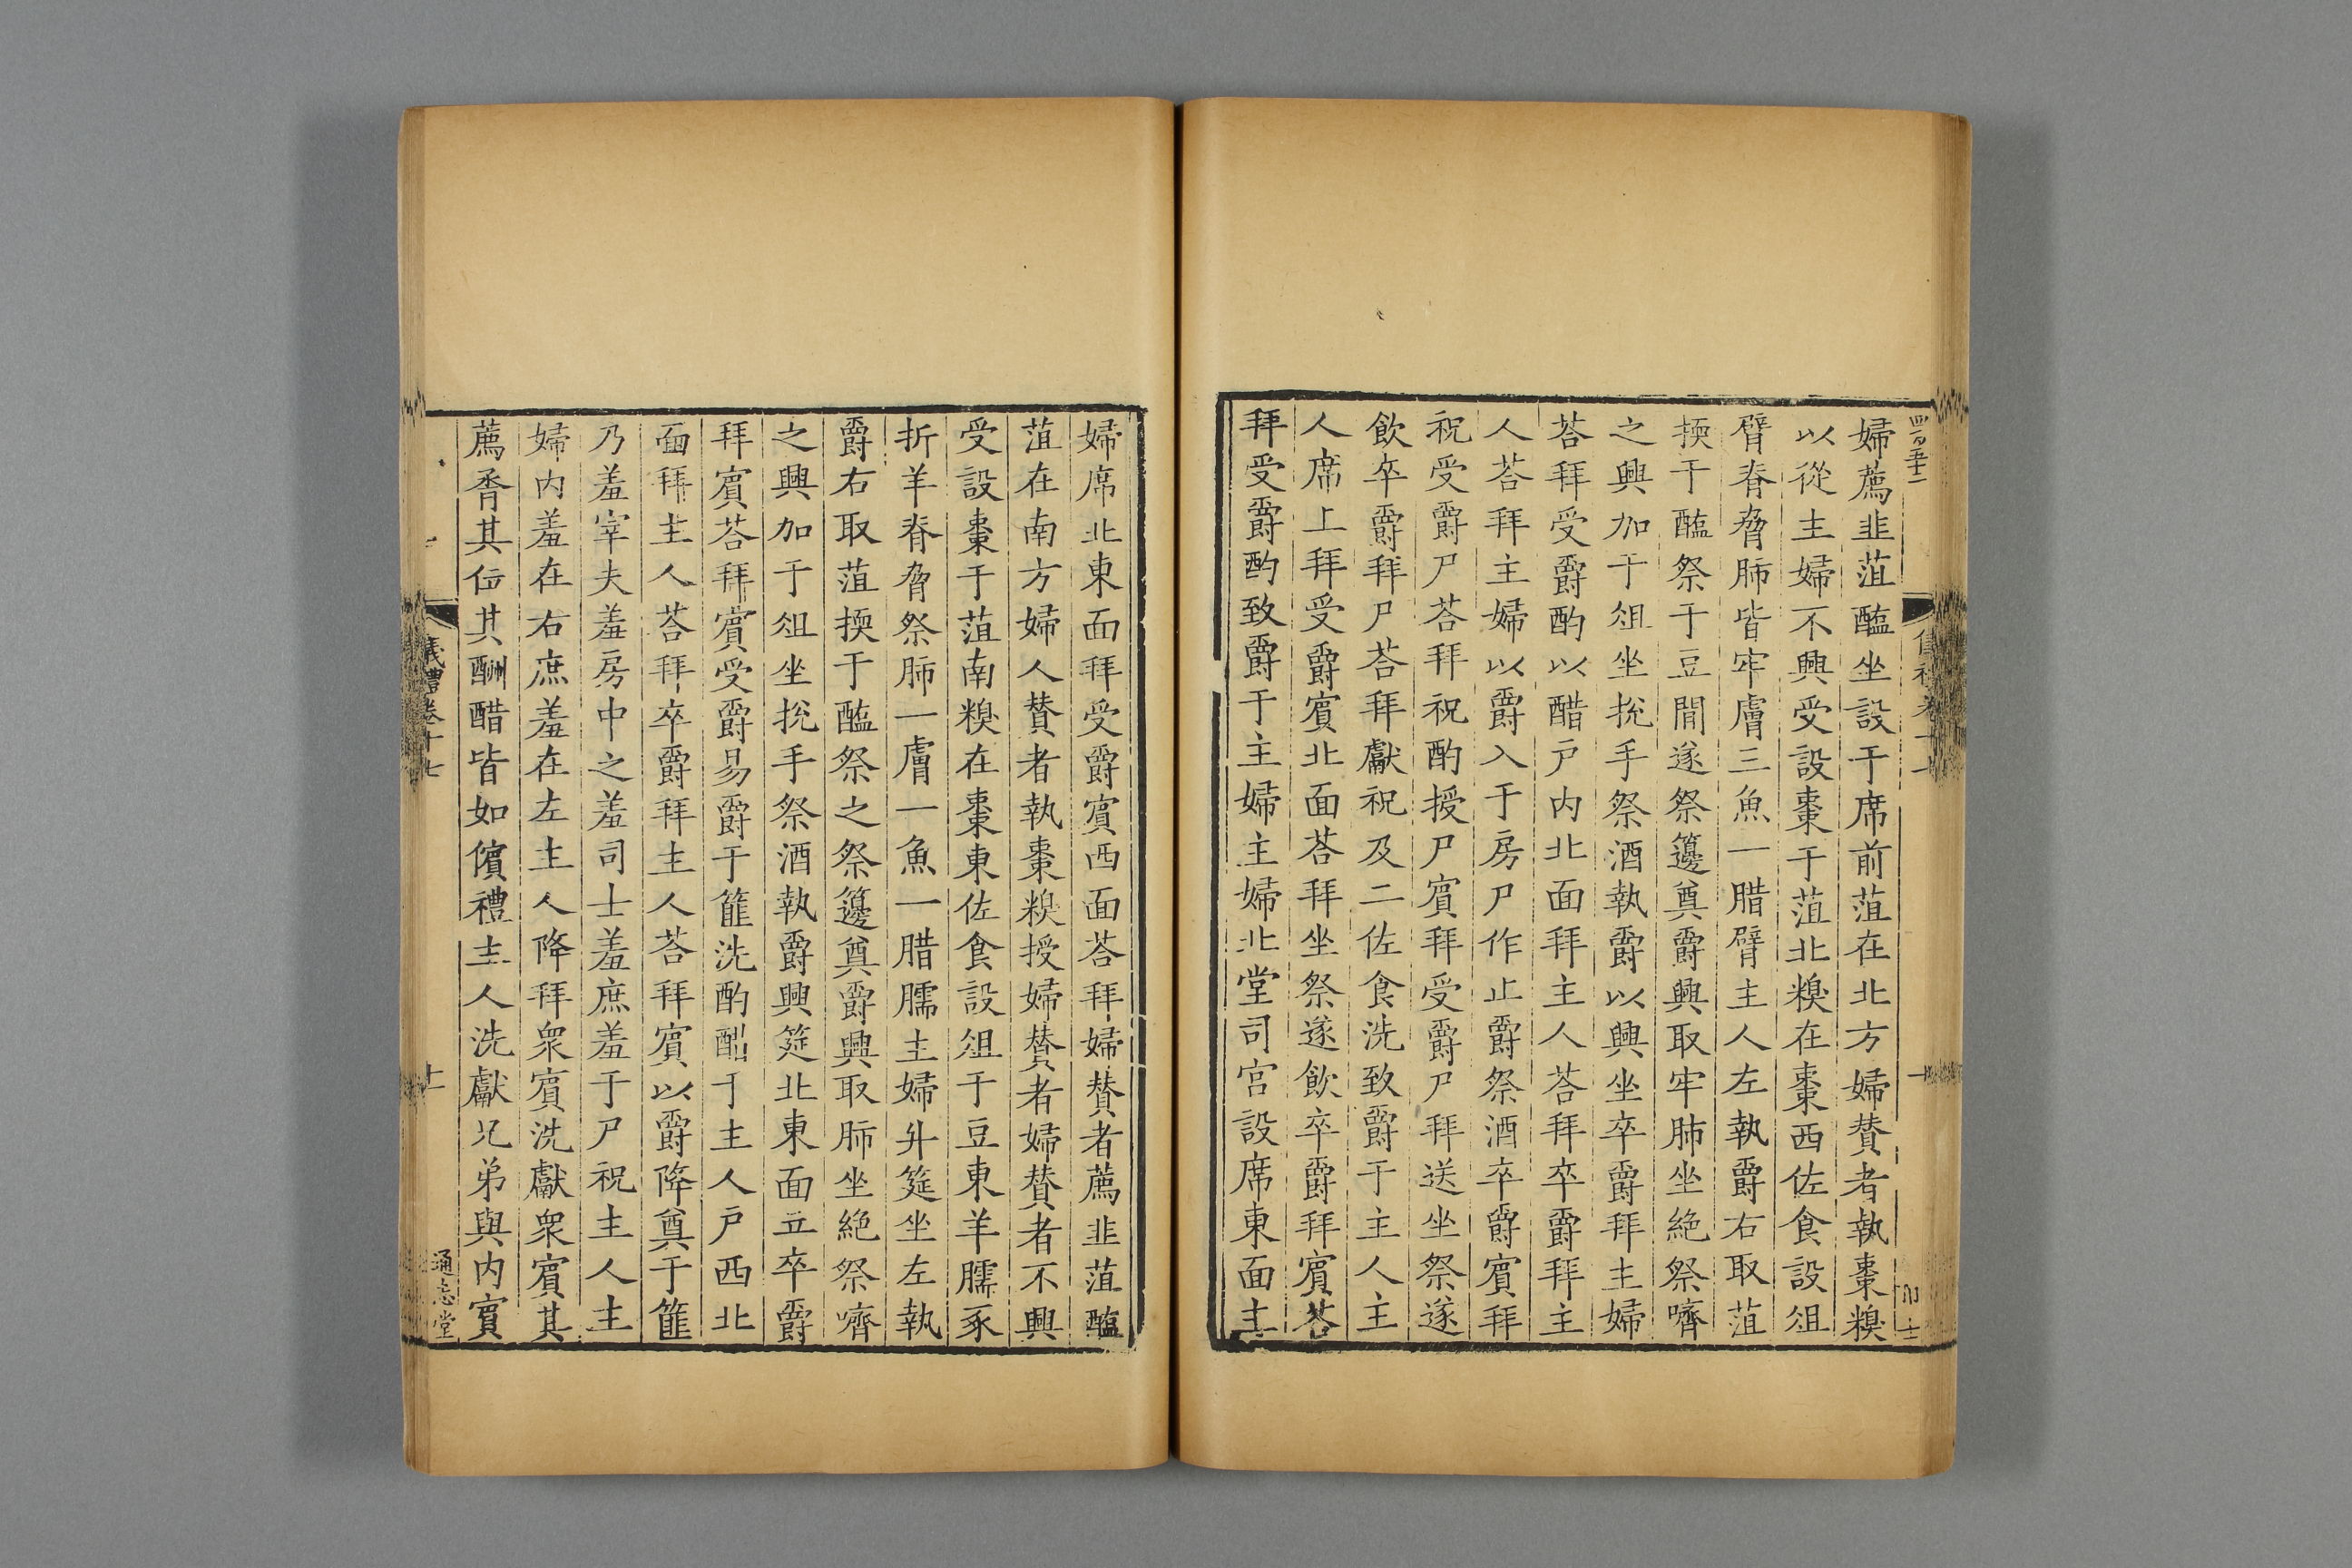 婦薦韭菹醢坐設于席前菹在北方婦贊者執棗糗
以從主婦不興受設棗于菹北糗在棗西佐食設俎
臂脊脅肺皆牢膚三魚一腊臂主人左執爵右取菹
擩于醢祭于豆閒遂祭籩奠爵興取牢肺坐絶祭嚌
之興加于俎坐挩手祭酒執爵以興坐卒爵拜主婦
荅拜受爵酌以醋戶内北面拜主人荅拜卒爵拜主
人荅拜主婦以爵入于房尸作止爵祭酒卒爵賔拜
祝受爵尸荅拜祝酌授尸賔拜受爵尸拜送坐祭遂
飲卒爵拜尸荅拜獻祝及二佐食洗致爵于主人主
人席上拜受爵賔北面荅拜坐祭遂飲卒爵拜賔荅
拜受爵酌致爵于主婦主婦北堂司宫設席東面主
婦席北東面拜受爵賔西面荅拜婦贊者薦韭菹醢
菹在南方婦人贊者執棗糗授婦贊者婦贊者不興
受設棗于菹南糗在棗東佐食設俎于豆東羊臑豕
折羊脊脅祭肺一膚一魚一腊臑主婦升筵坐左執
爵右取菹擩于醢祭之祭籩奠爵興取肺坐絶祭嚌
之興加于俎坐挩手祭酒執爵興筵北東面立卒爵
拜賔荅拜賔受爵易爵于篚洗酌醋于主人戶西北
面拜主人荅拜卒爵拜主人荅拜賔以爵降奠于篚
乃羞宰夫羞房中之羞司士羞庶羞于尸祝主人主
婦内羞在右庶羞在左主人降拜衆賔洗獻衆賔其
薦脀其位其酬醋皆如儐禮主人洗獻兄弟與内賔
儀禮卷十七
通志堂